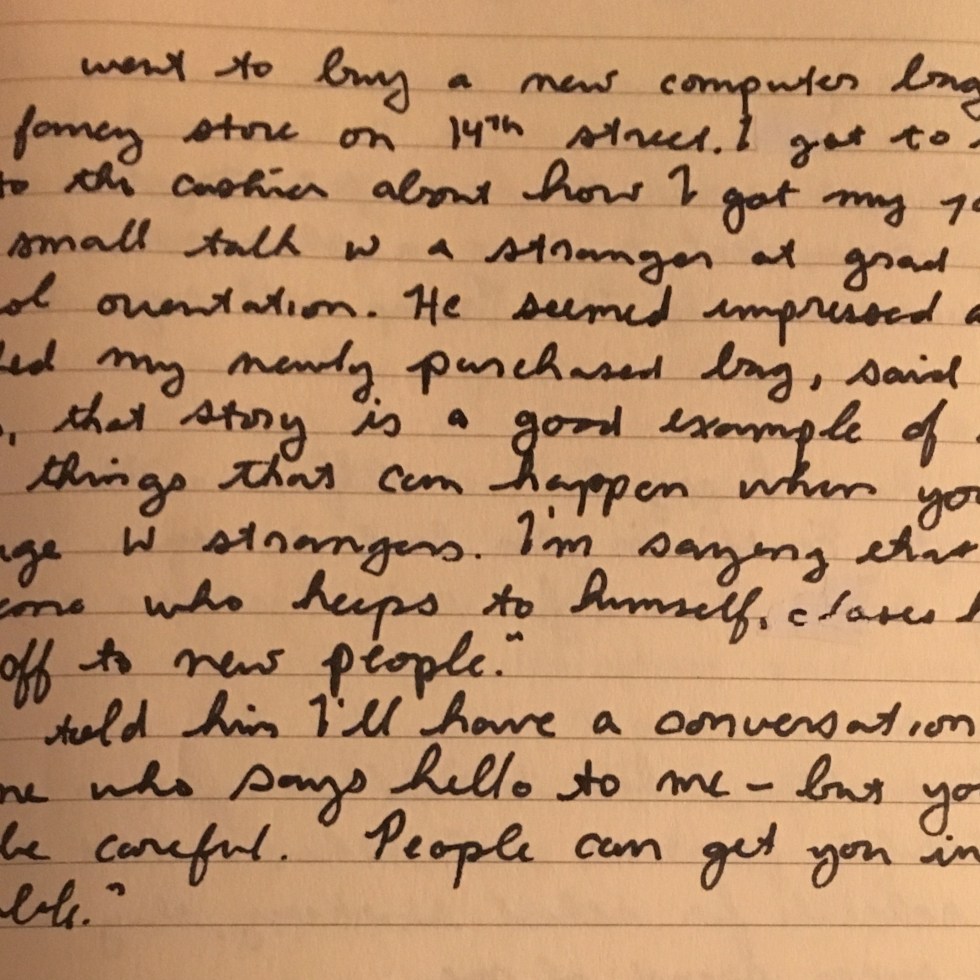 went to buy a new computer bag
fancy store on 14th street. I got to
to the cashier about how I got my
small talk w a stranger at grad
ol orientation. He seemed impressed a
ed my newly purchased bag, said
, that story is a good example of
things that can happen when you
ge w strangers. I'm saying that
who keeps to himself, closes
off to new people."
told him I'll have a conversation
ne who says hello to me – but yo
be careful. People can get you in